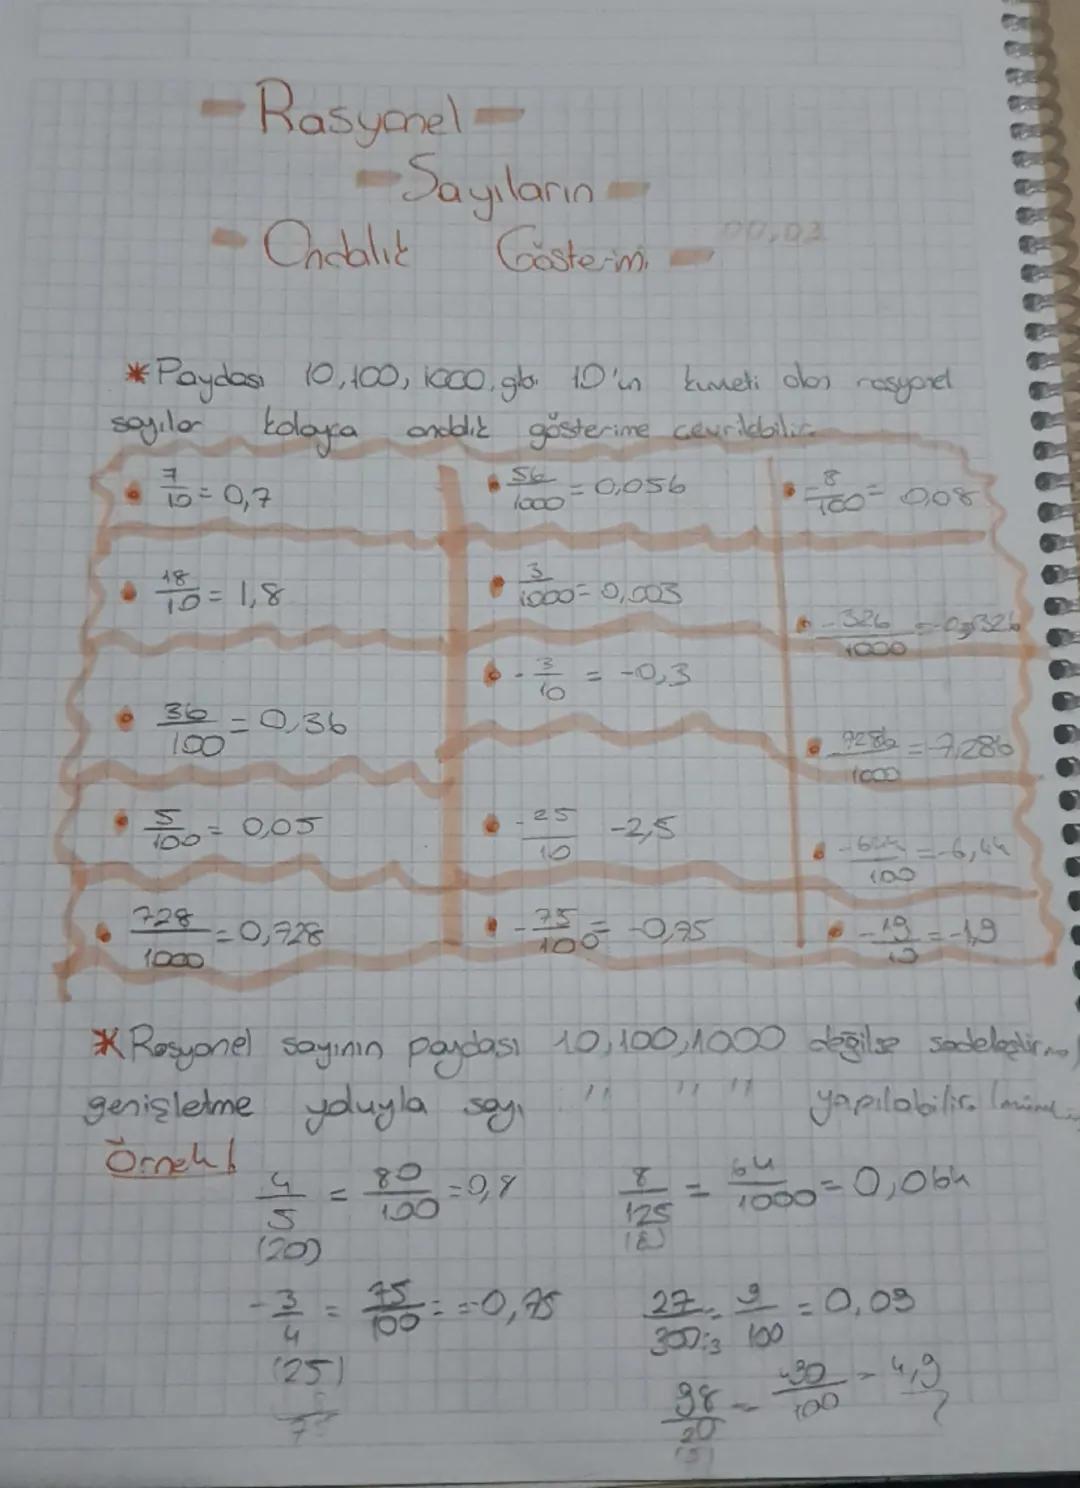 Rasyonel
Sayıların
Ondalık Gösterimi
00,02
* Paydası 10,100,1000 gibi 10'un kuvveti olan rasyonel
sayılar kolayca ondalık gösterime çevrilebilir.
• 7/10 = 0,7
• 18/10 = 1,8
• 36/100 = 0,36
• 5/100 = 0,05
• 728/1000 = 0,728
• 56/1000 = 0,056
• 3/1000 = 0,003
• -3/10 = -0,3
• -25/10 -2,5
• -75/100 = -0,75
• -8/100 = 0,08
• -326/1000 = -0,326
• 7286/1000 = -7,286
• -644/100 = -6,44
• -19/10 = -1,9
* Rasyonel sayının paydası 10,100,1000 değilse sadeleştirme,
genişletme yoluyla sayı " " " yapılabilir.
Örnek!
4/5 = 80/100 = 0,8
(20)
8/125 = 64/1000 = 0,064
(8)
-3/4 = 75/100 = = -0,75
(25)
27/300:3 = 9/100 = 0,09
98/20 = 490/100 = 4,9
(5)